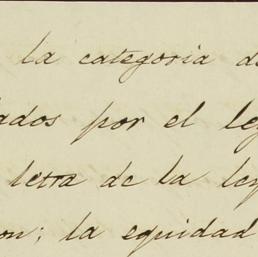 la categoria de
ados por el leg
letra de la ley
on; la equidad